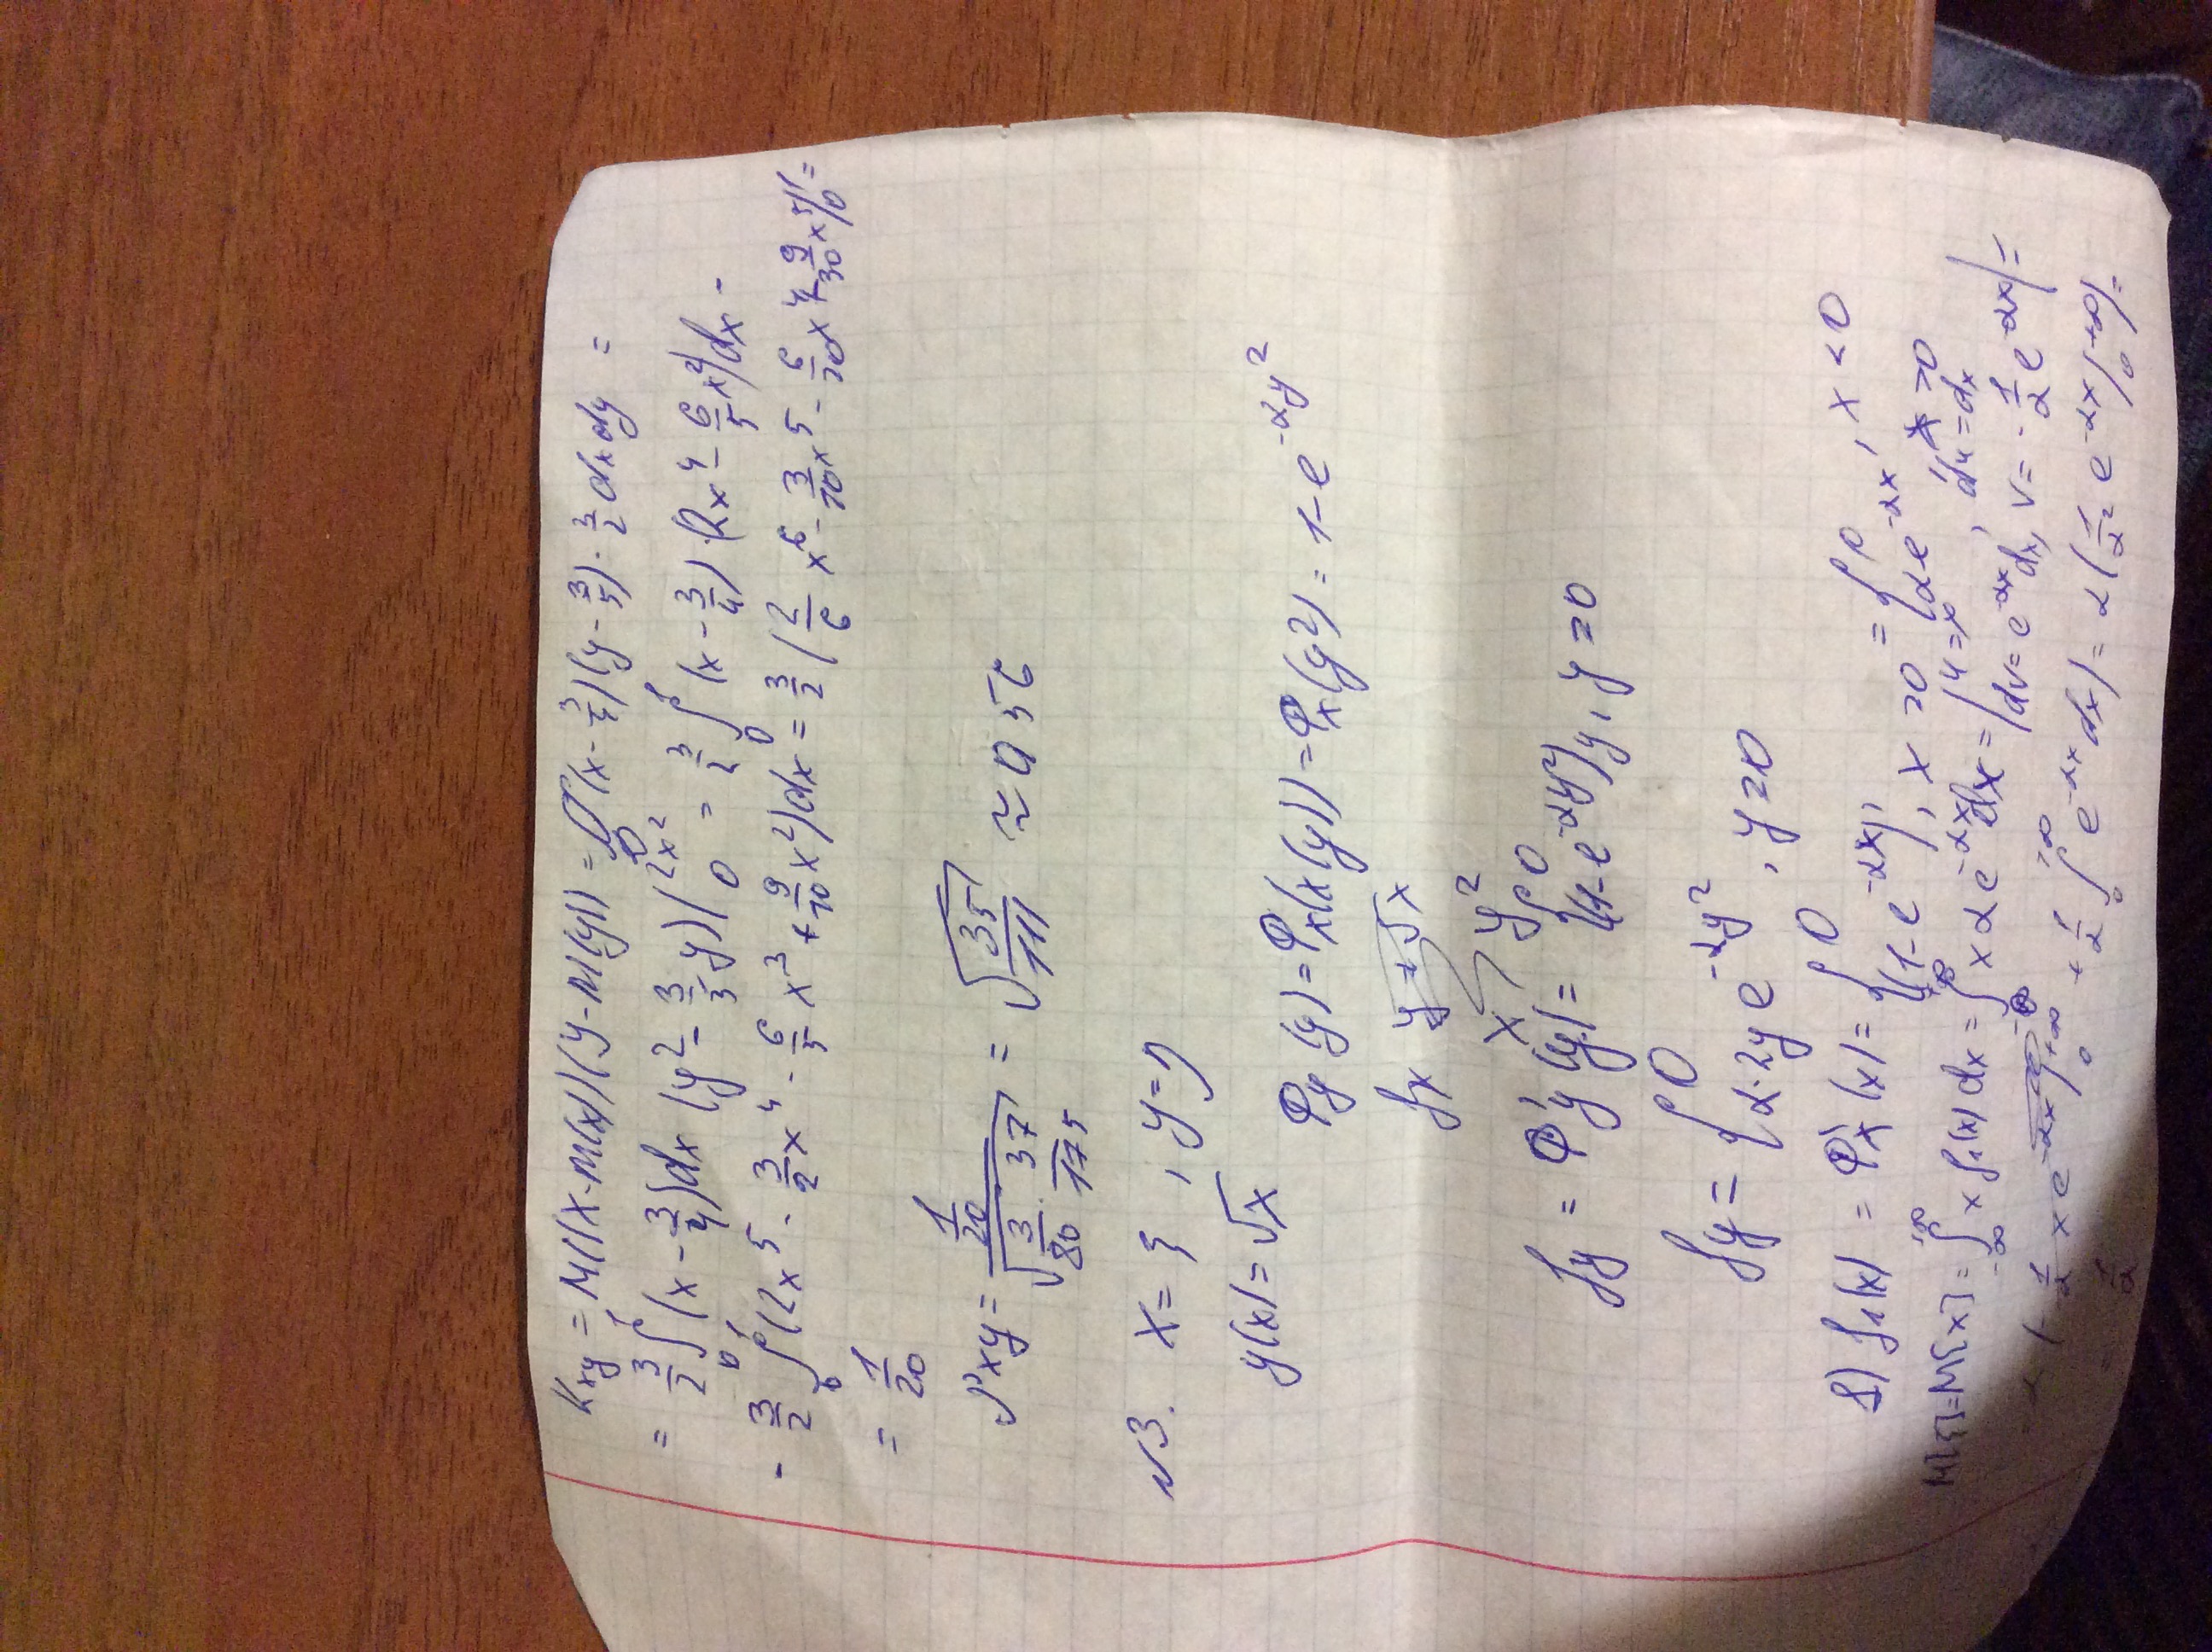 Kxy = M((x-M(x))(y-M(y))) = ∬(x-3/4)(y-3/5)·3/2 dxdy =
= 3/2 ∫₀¹(x-3/4)dx (y²-3/5y)|₀^(2x²) = 3/2 ∫₀¹(x-3/4)(2x⁴-6/5x²)dx -
- 3/2 ∫₀¹(2x⁵-3/2x⁴-6/5x³+9/10x²)dx = 3/2(2/6x⁶-3/10x⁵-6/20x⁴+9/30x³)|₀¹ =
= 1/20
ρxy = (1/20)/√(3/80·37/175) = √(35/111) ≈ 0,56
√3. x = ξ, y = η
y(x) = √x
Φy(y) = Φx(x(y)) = Φx(y²) = 1-e^(-αy²)
fx y=√x
x y²
fy = Φ'y(y) = {0
(1-e^(-αy²))'y, y≥0
fy = {0
α·2ye^(-αy²), y≥0
1) f₁(x) = Φ'x(x) = {0
(1-e^(-αx))', x≥0 = {0, x<0
αe^(-αx), x≥0
M[ξ]=M[x] = ∫_(-∞)^(+∞) x f₁(x)dx = ∫₀^(+∞) xαe^(-αx)dx = |u=x, du=dx
dv=e^(-αx)dx, v=-1/α e^(-αx)| =
= α(-1/α xe^(-αx)|₀^(+∞) + 1/α ∫₀^(+∞) e^(-αx)dx) = α(1/α² e^(-αx)|₀^(+∞)) =
= 1/α